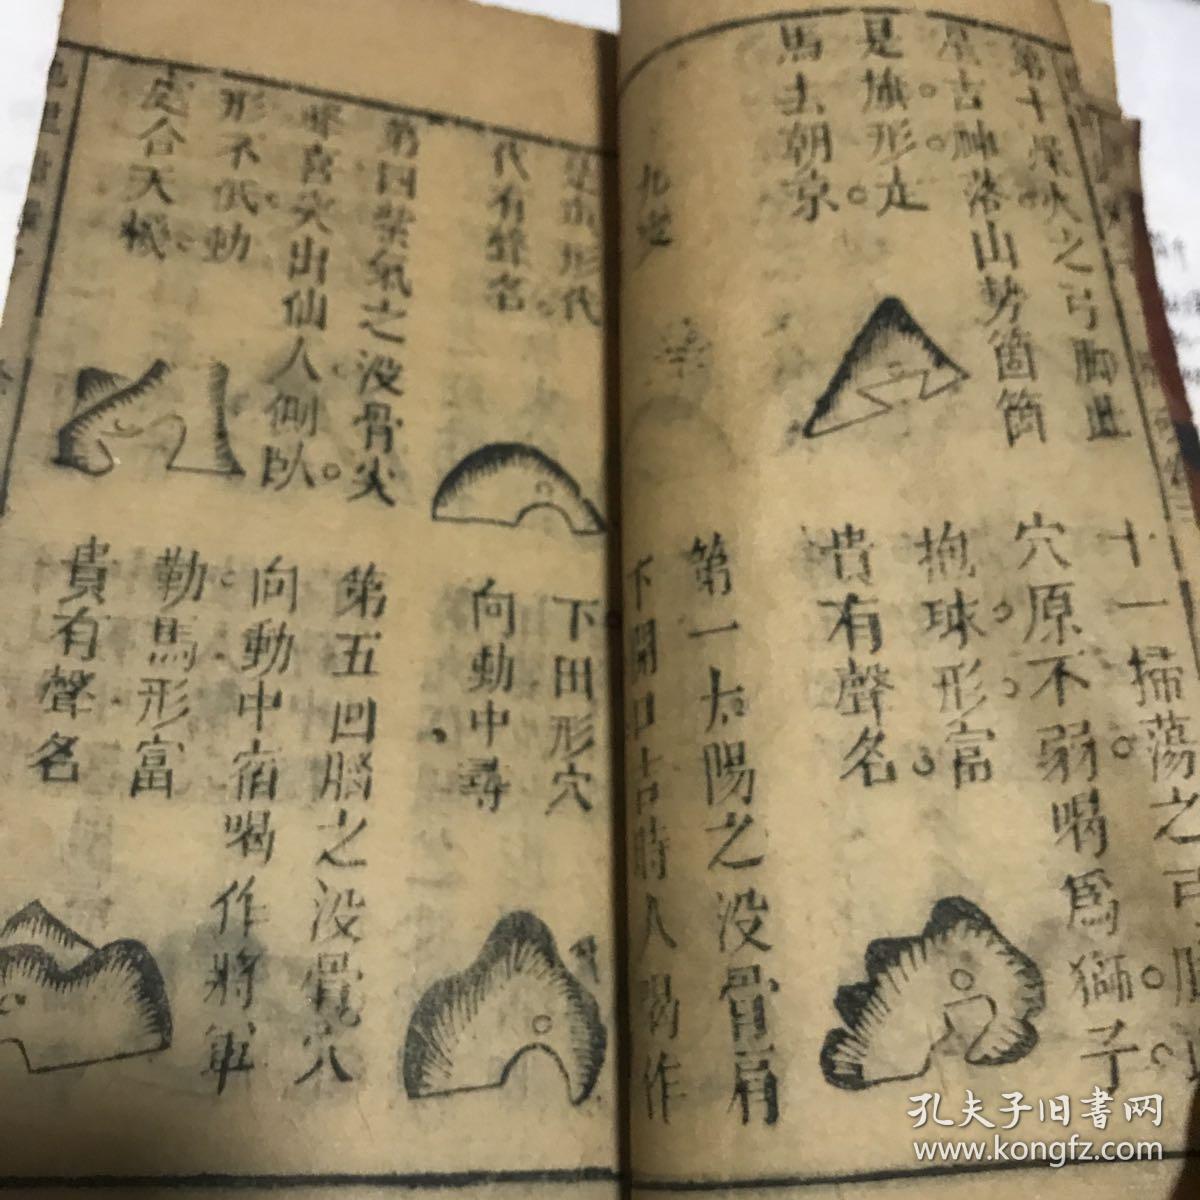 第十燥火之弓脚此
星吉神落山勢箇箇
是旗形走
馬去朝京
十一掃蕩之弓脚
穴原不弱喝爲獅子
抱球形富
貴有聲名
第一太陽之没骨肩
下開口上時人喝作
形代
代有聲名
下田形穴
向動中尋
第四紫氣之没骨尖
喜突出仙人側臥
形不低動
定合天機
第五凹腦之没骨穴
向動中宿喝作將軍
勒馬形富
貴有聲名
孔夫子旧書网
www.kongfz.com